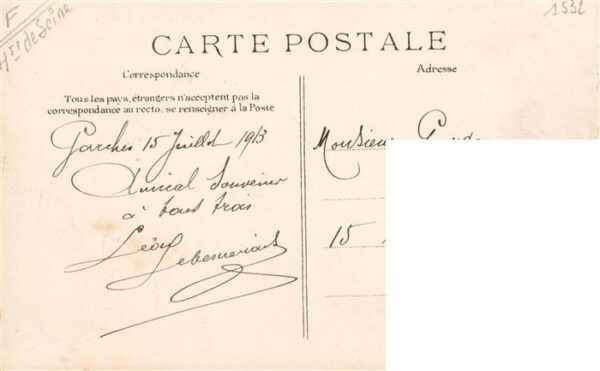 F
Hts de Seine
1532
CARTE POSTALE
Correspondance
Adresse
Tous les pays étrangers n'acceptent pas la
correspondance au recto. se renseigner à la Poste
Garches 15 Juillet 1913
Amical Souvenir
à tous trois
Léon
Monsieur
15